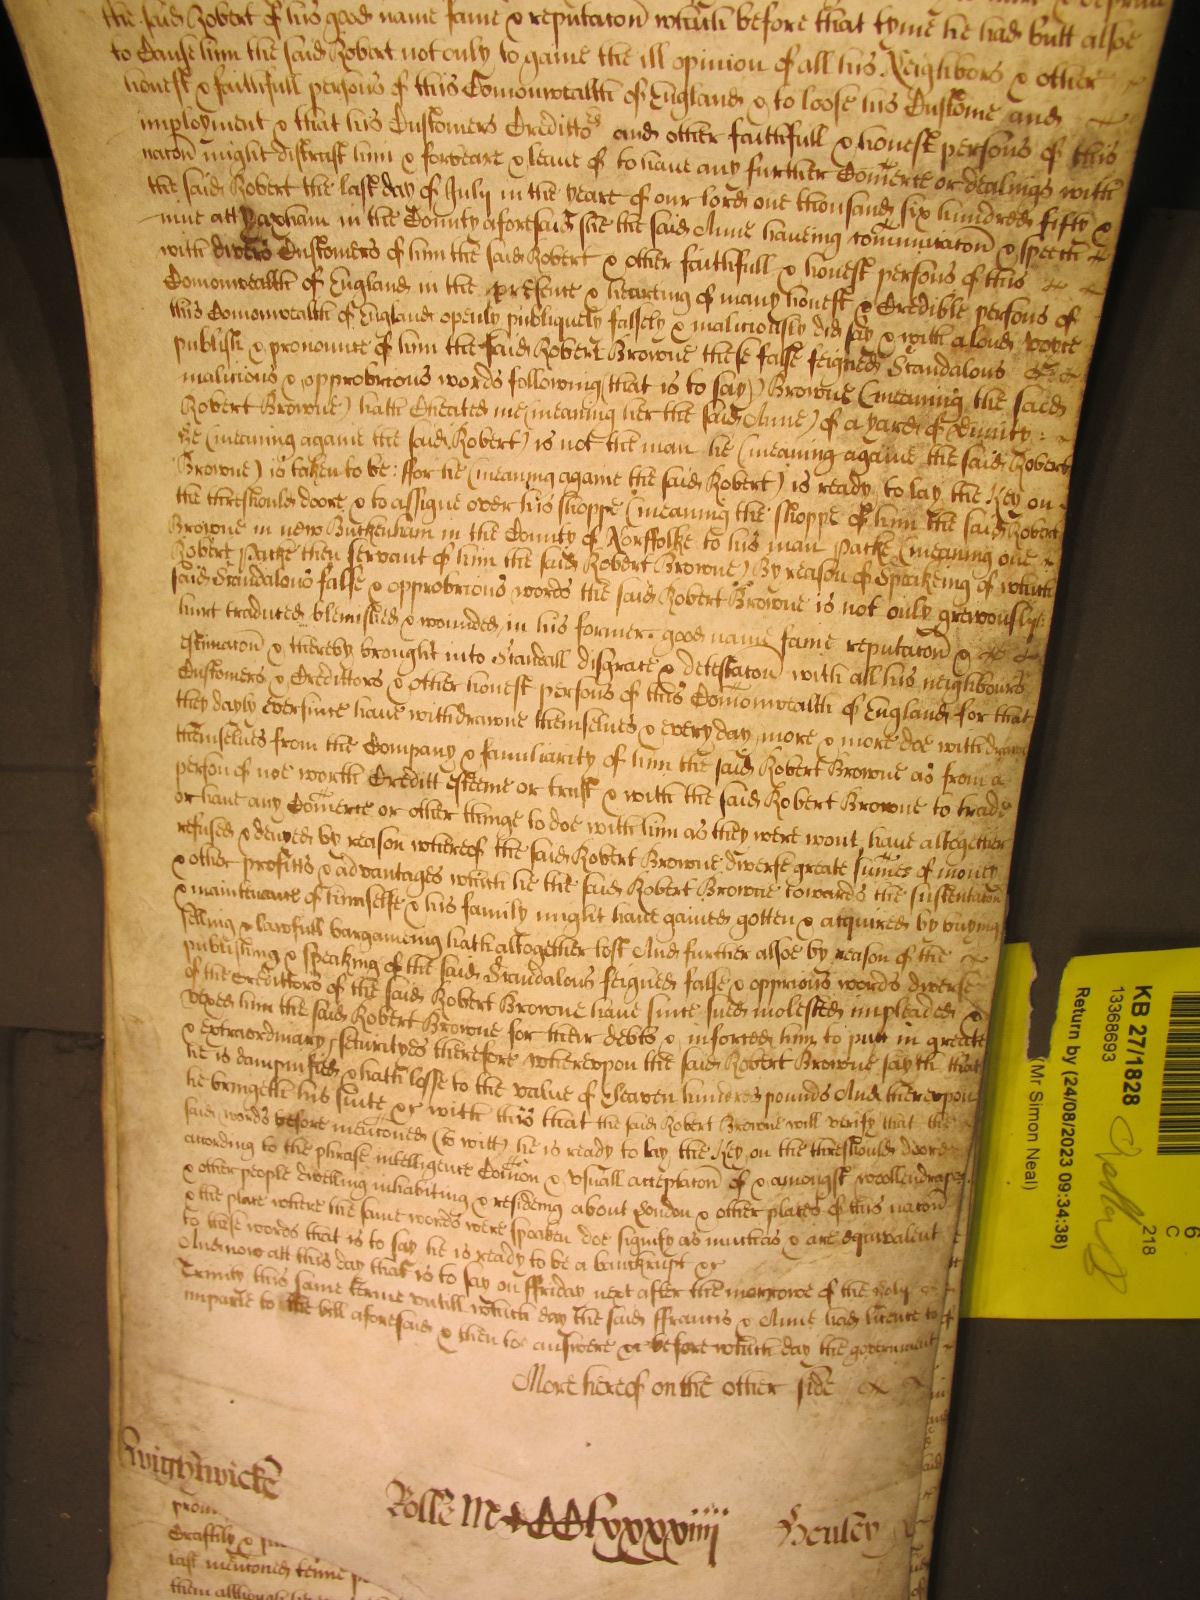 the said Robert of his good name fame & reputacon which before that tyme he had butt alsoe
to Cause him the said Robert not only to gaine the ill opinion of all his Neighbors & other
honest & faithfull persons of this Comonwealth of England & to loose his Custome and
imployment & that his Customers Creditto^rs and other faithfull & honest persons of this
nacon might distrust him & forbeare & leave of to have any further Comerce or dealings with
the said Robert the last day of July in the yeare of our lord one thousand six hundred fifty &
nine att Yaxham in the County aforesaid she the said Anne haveing comunicacon & speech
with divers Customers of him the said Robert & other faithfull & honest persons of this
Comonwealth of England in the presence & heareing of many honest & Credible persons of
this Comonwealth of England openly publiquely falsely & maliciously did say & with a loud voyce
publish & pronounce of him the said Robert Browne these false feigned Scandalous
malicious & opprobrious words following (that is to say) Browne (meaning the said
Robert Browne) hath Cheated me (meaning her the said Anne) of a yard of Dimity
he (meaning againe the said Robert) is not the man he (meaning againe the said Robert
Browne) is taken to be: ffor he (meaning againe the said Robert) is ready to lay the Key on
the threshould doore & to assigne over his shoppe (meaning the shoppe of him the said Robert
Browne in new Buckenham in the County of Norffolke to his man Packe (meaning one
Robert Packe then servant of him the said Robert Browne) By reason of speakeing of which
said Scandalous false & opprobrious words the said Robert Browne is not only greivously
hurt traduced blemished & wounded in his former good name fame reputacon &
estimacon & thereby brought into Scandall disgrace & detestacon with all his neighbours
Customers & Credittors & other honest persons of this Comonwealth of England for that
they dayly ever since have withdrawne themselves & every day more & more doe withdrawe
themselves from the Company & familiarity of him the said Robert Browne as from a
person of noe worth Creditt esteeme or trust & with the said Robert Browne to trade
or have any Comerce or other thinge to doe with him as they were wont, have altogether
refused & denyed by reason whereof the said Robert Browne diverse greate sumes of money
& other profitts & advantages which he the said Robert Browne towards the sustentacon
& maintenance of himselfe & his family might have gained gotten & acquired by buying
selling & lawfull bargaineing hath altogether lost And further alsoe by reason of the
publishing & speaking of the said Scandalous feigned false & opprious words diverse
of the Credittors of the said Robert Browne have since sued molested impleaded &
vexed him the said Robert Browne for their debts & inforced him to putt in greate
& extraordinary securityes therefore whereupon the said Robert Browne sayth that
he is dampnified & hath losse to the value of Seaven hundred pounds And thereupon
he bringeth his suite &c with this that the said Robert Browne will verify that the
said words before mencioned (to witt) he is ready to lay the Key on the threshould doore
according to the phrase intelligence Comon & usuall acceptacon of & amongst woollendrapers
& other people dwelling inhabiting & resideing about London & other places of this nacon
& the place where the same words were spoaken doe signify as much as & are equivalent
to these words that is to say he is ready to be a banckrupt &c
And now att this day that is to say on ffriday next after the morrowe of the holy
Trinity this same terme untill which day the said ffrancis & Anne had licence to
imparle to the bill aforesaid & then to answere &c before which day the government
More hereof on the other side
Wightwicke
Rolle MCCClxxxxiiii
Henley
prom
Craftily &
last mencioned terme
them although
KB 27/1828
13368693
Return by (24/08/2023 09:34:38)
(Mr Simon Neal)
218
C
6